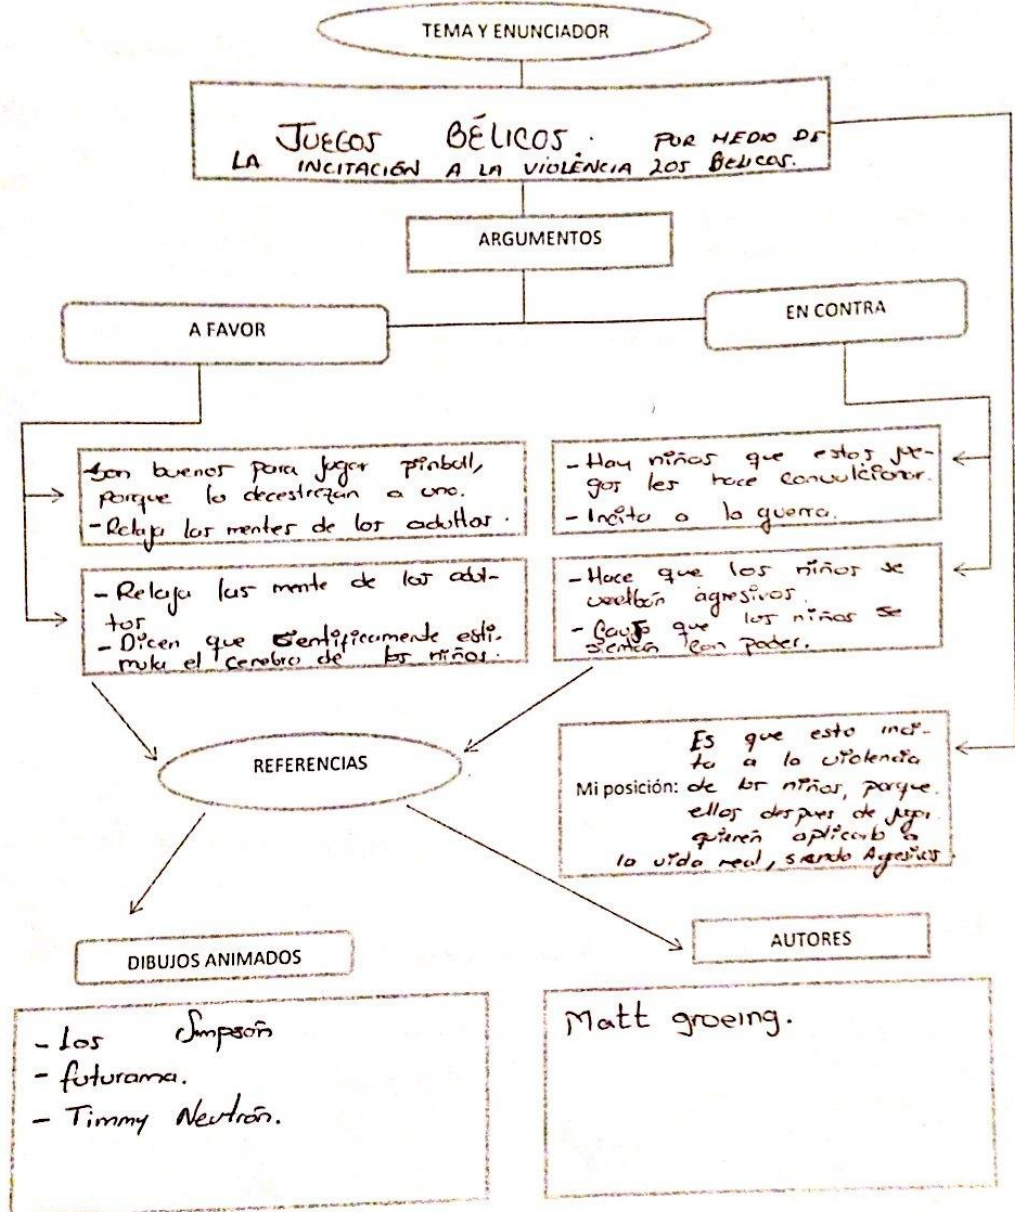 TEMA Y ENUNCIADOR
JUEGOS BÉLICOS. POR MEDIO DE
LA INCITACIÓN A LA VIOLÉNCIA LOS BELICOS.
ARGUMENTOS
A FAVOR
EN CONTRA
-Son buenos para jugar pinball,
porque lo decestrezan a uno.
-Relaja las mentes de los adultos.
- Relaja las mente de los adul-
tos
- Dicen que sientificamente esti-
mula el cerebro de los niños.
- Hay niños que estos jue-
gos les hace convulcionar.
- Incita a la guerra.
- Hace que los niños se
vuelban agresivos.
- Causa que los niños se
sientan con poder.
REFERENCIAS
Mi posición: Es que esto inci-
ta a la violencia
de los niños, porque
ellos despues de jugar
quieren aplicarlo a
la vida real, siendo Agresivos.
DIBUJOS ANIMADOS
- Los Simpson
- futurama.
- Timmy Neutrón.
AUTORES
Matt groeing.